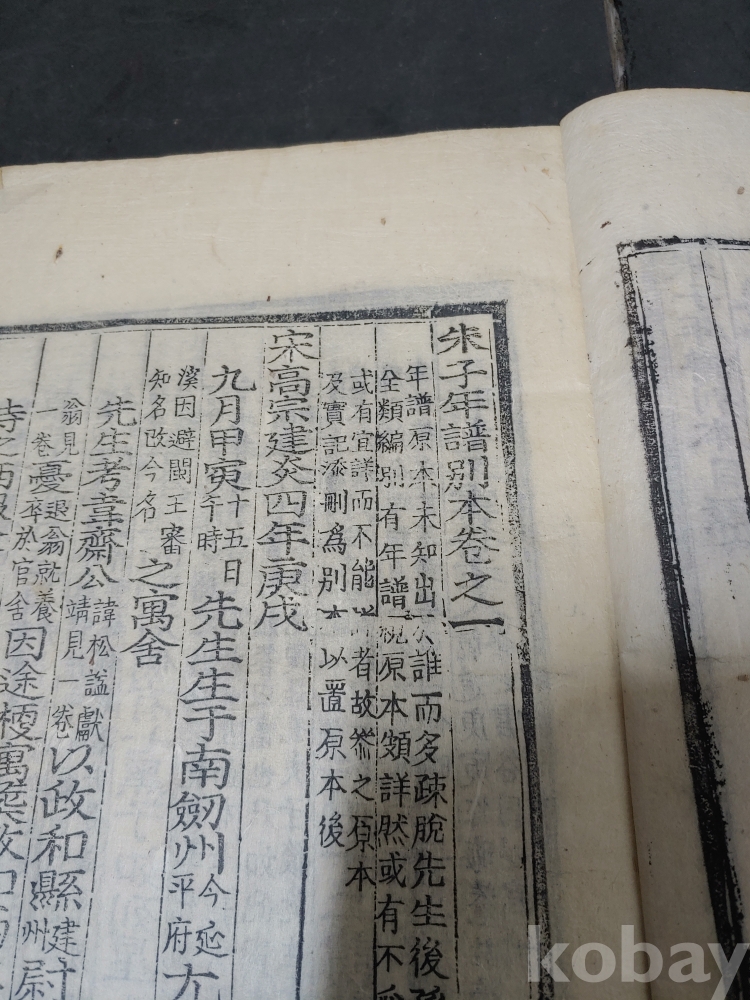 朱子年譜別本卷之一
年譜原本未知出於誰而多疎脫先生後孫
全類編別有年譜視原本頗詳然或有不
或有宜詳而不能 者故參之原本
及實記添刪爲別本以置原本後
宋高宗建炎四年庚戌
九月甲寅十五日午時先生生于南劒州今延平府尤
溪因避閩王審知名改今名之寓舍
先生考韋齋公諱松謚獻靖見一卷以政和縣建州尉
翁見一卷憂退翁就養卒於官舍因
kobay